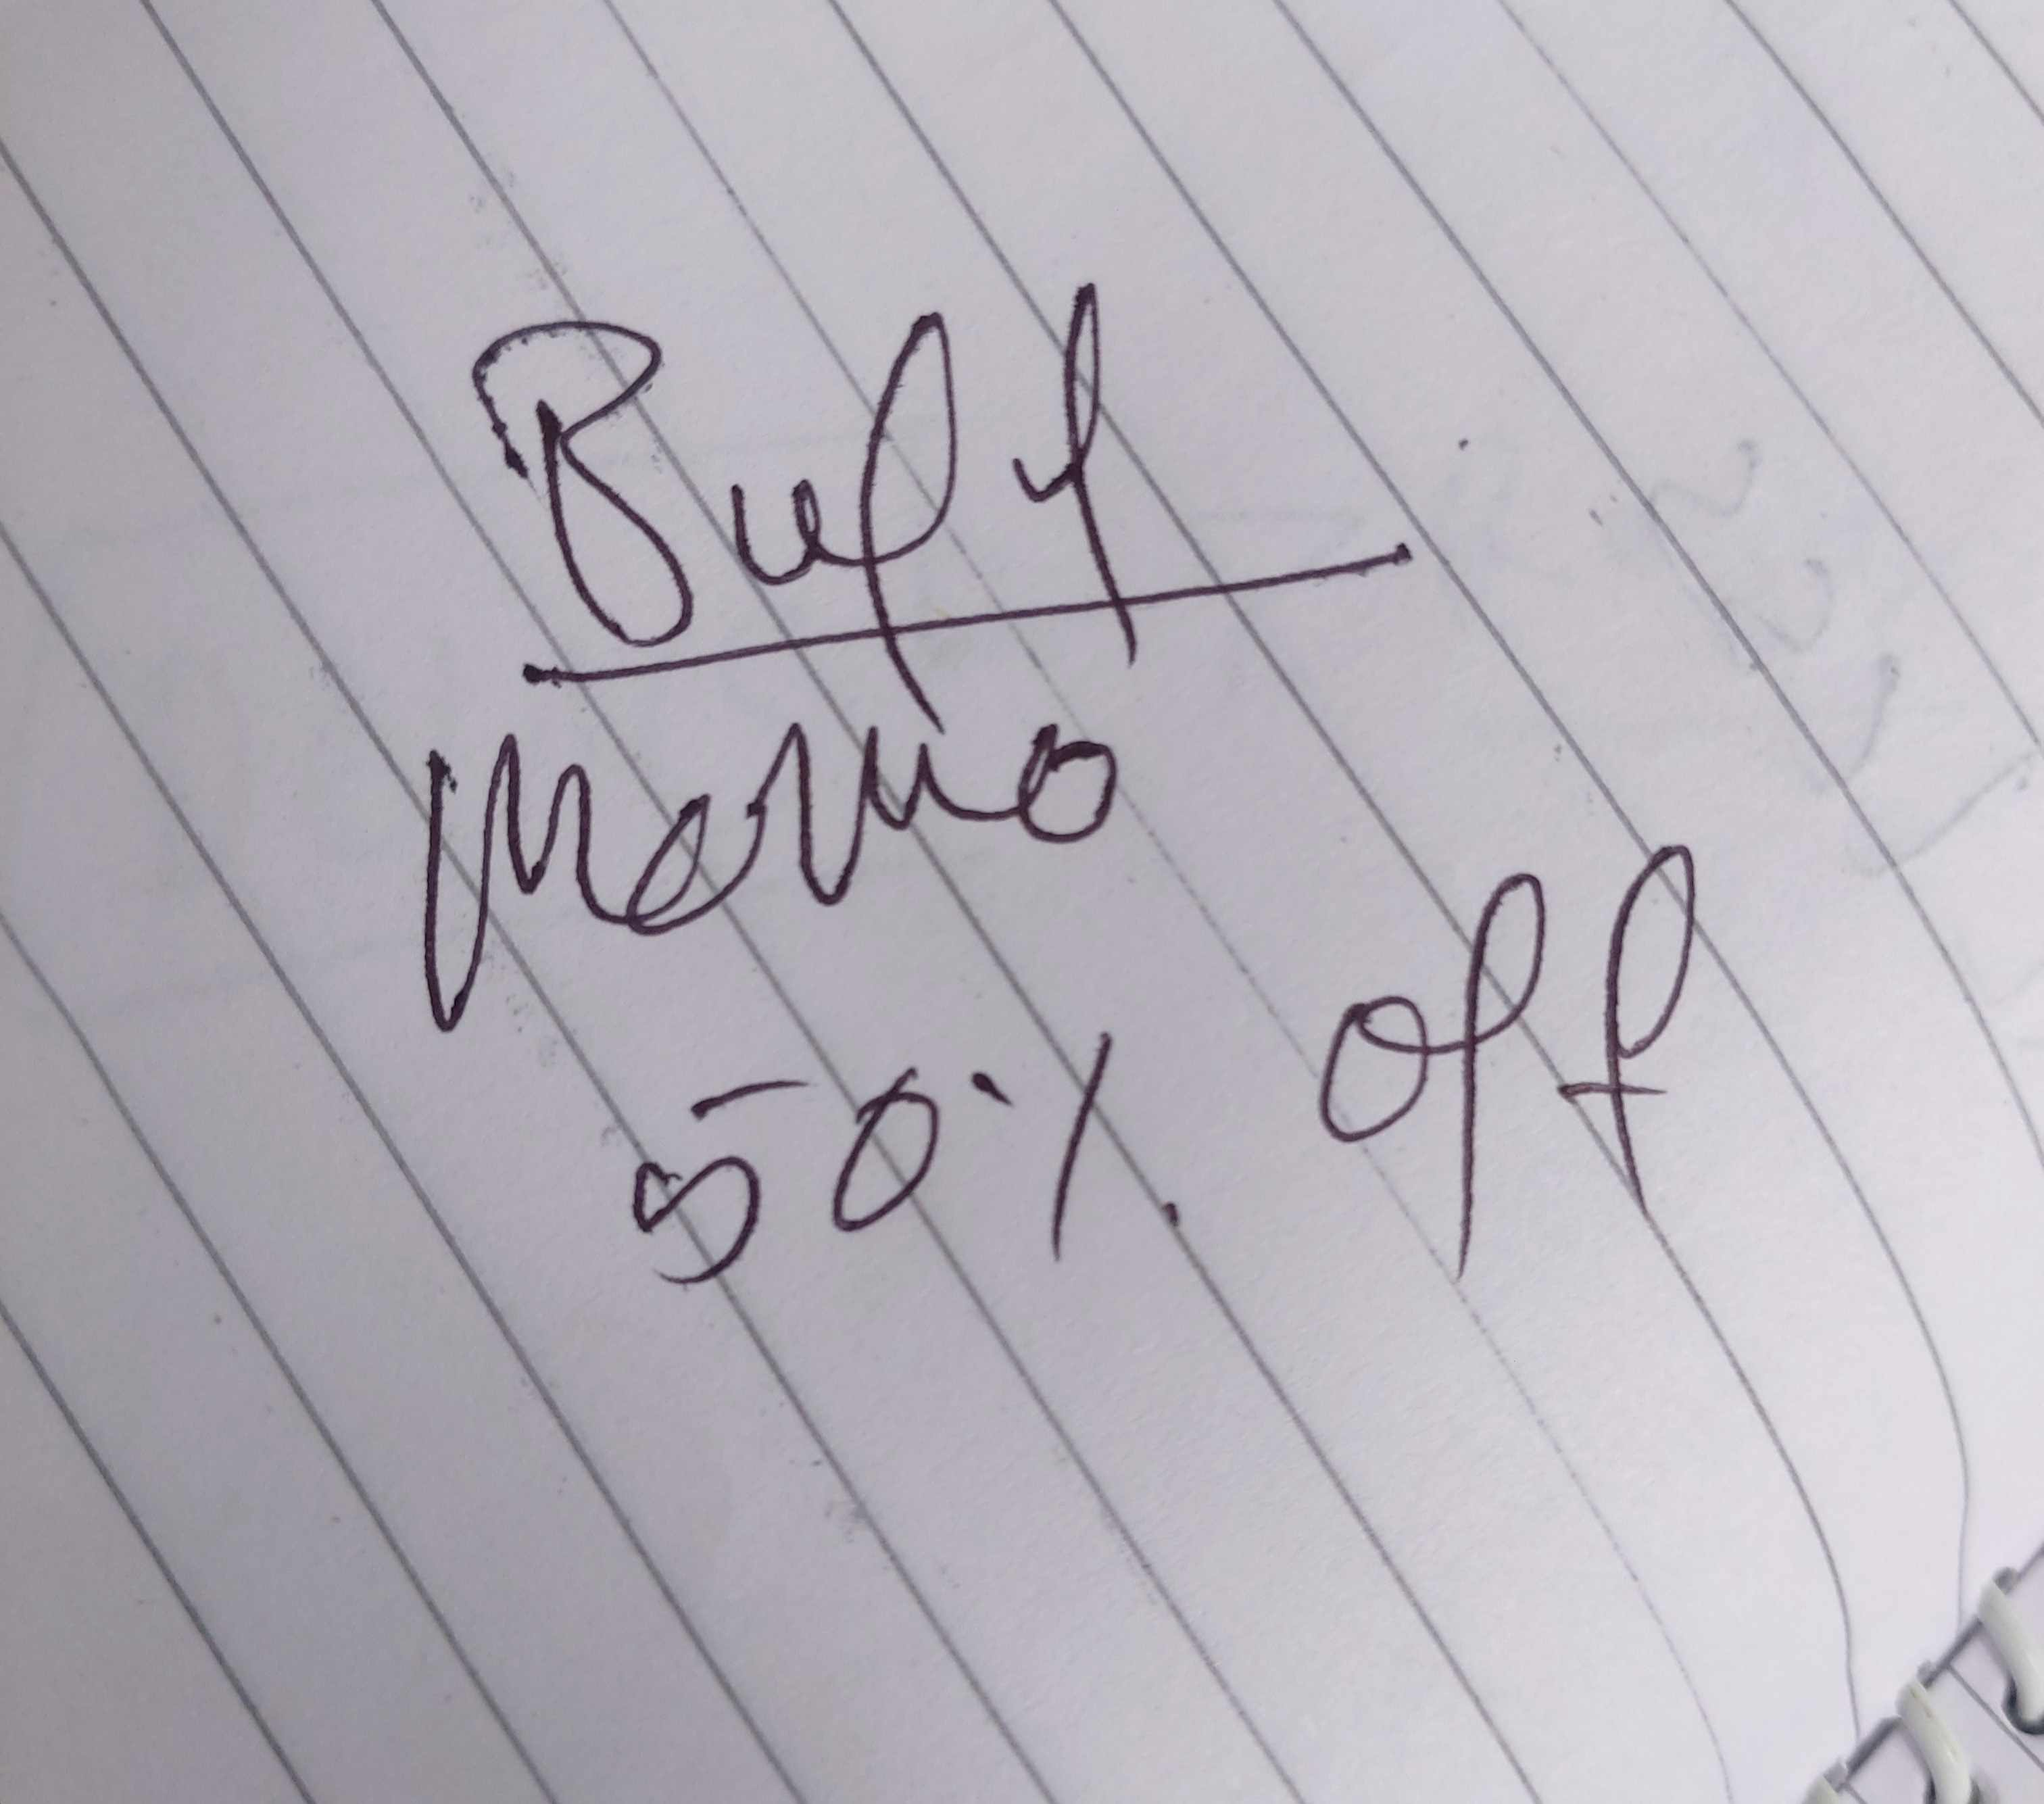 Buff
Memo
50% off